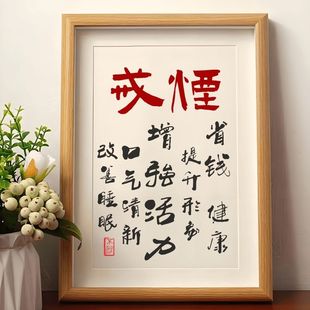 戒煙
省钱 健康
提升形象
增強活力
口气清新
改善睡眠